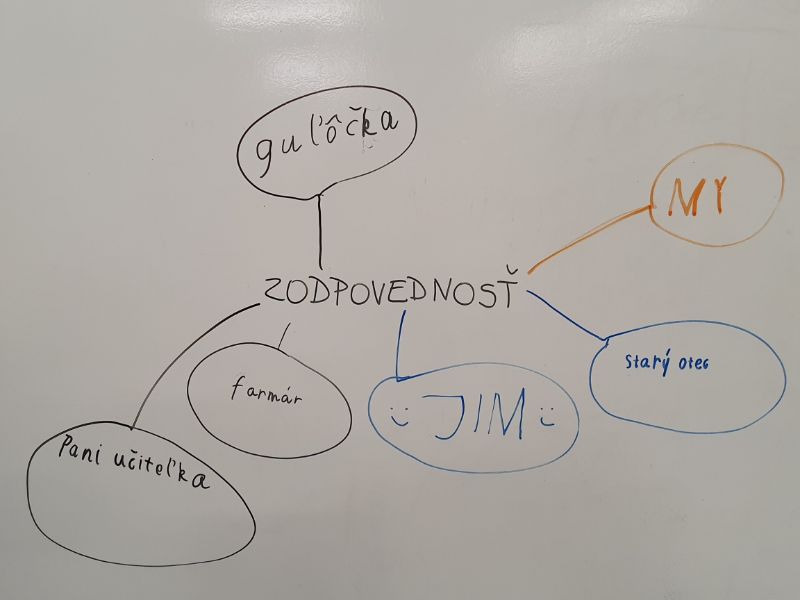 guľôčka
MY
ZODPOVEDNOSŤ
Starý otec
farmár
JIM
Pani učiteľka